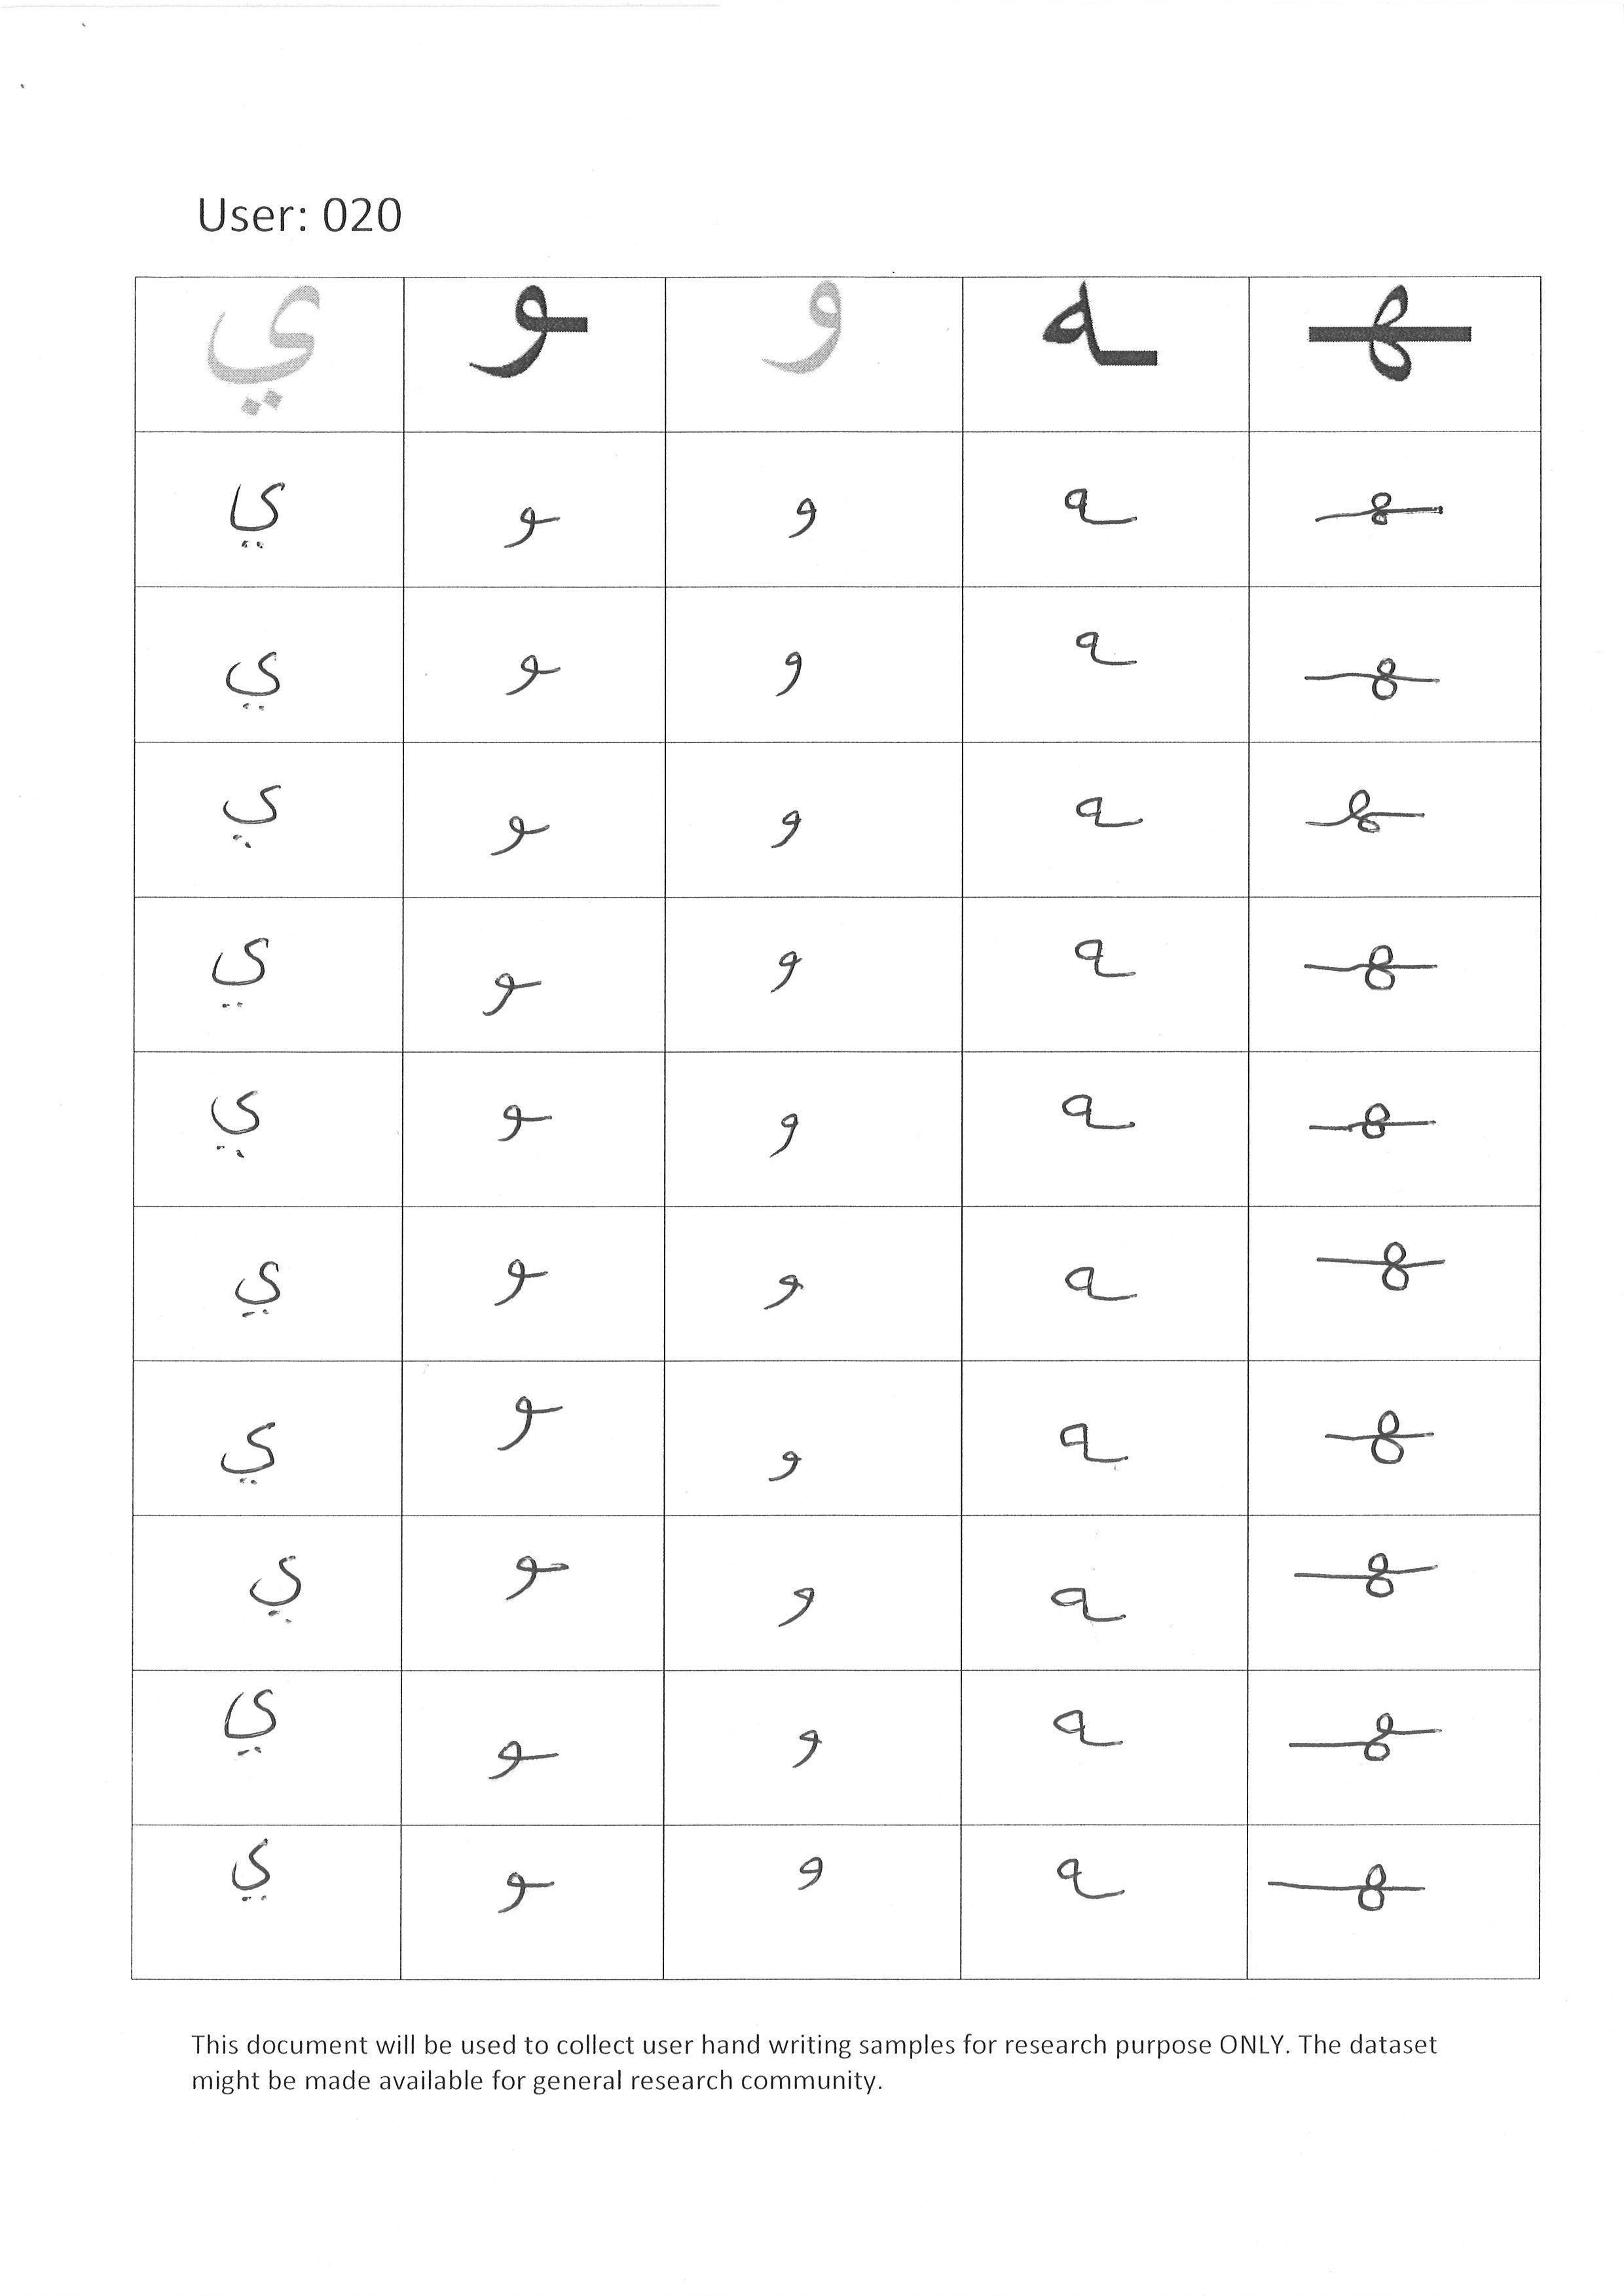 User: 020
ي ـو و ـه ـهـ
ي ـو و ـه ـهـ
ي ـو و ـه ـهـ
ي ـو و ـه ـهـ
ي ـو و ـه ـهـ
ي ـو و ـه ـهـ
ي ـو و ـه ـهـ
ي ـو و ـه ـهـ
ي ـو و ـه ـهـ
ي ـو و ـه ـهـ
ي ـو و ـه ـهـ
This document will be used to collect user hand writing samples for research purpose ONLY. The dataset
might be made available for general research community.